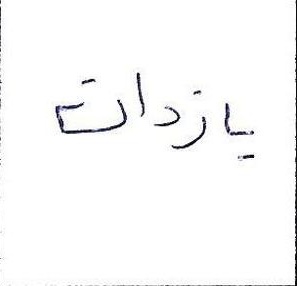 يازدات